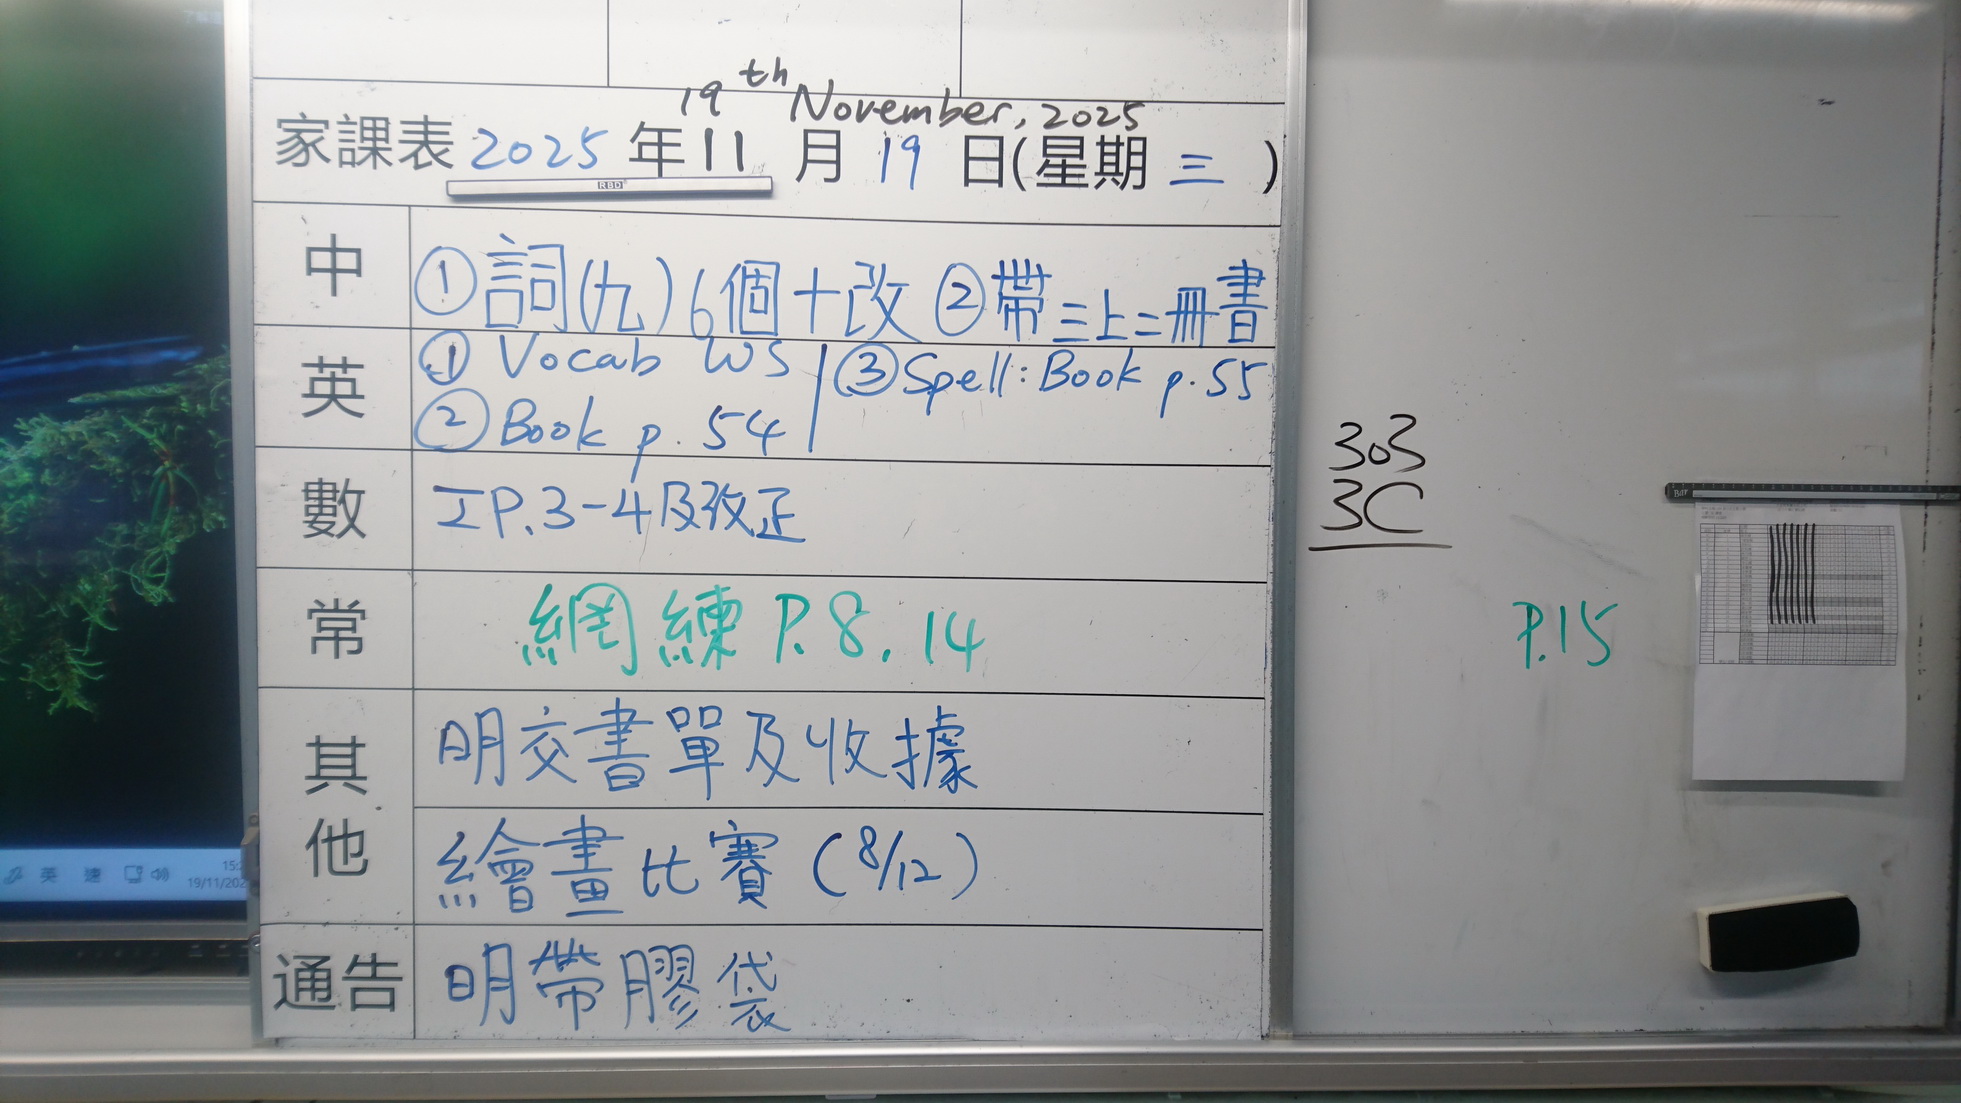 19th November, 2025
家課表 2025 年 11 月 19 日(星期 三 )
RBD
中 ①詞(九)6個+改 ②帶三上二冊書
英 ① Vocab WS ③Spell: Book p.55
② Book p.54
數 工P.3-4及改正
常 網練 P.8, 14
其他 明交書單及收據
繪畫比賽 (8/12)
通告 明帶膠袋
303
3C
P.15
英 速
19/11/202